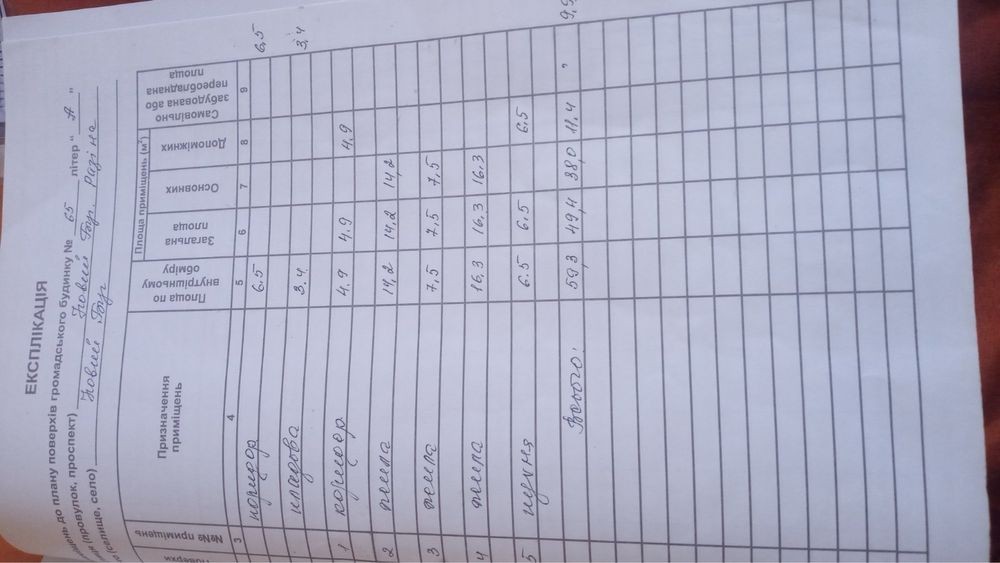 ЕКСПЛІКАЦІЯ
до плану поверхів громадського будинку № 65 літер " А "
(провулок, проспект) Новий Буг. вул. Разіна
(селище, село) Новий Буг
Поверхи
№№ приміщень
Призначення приміщень
Площа по внутрішньому обміру
Площа приміщень (м²)
Загальна площа
Основних
Допоміжних
Самовільно забудована або переобладнана площа
3 4 5 6 7 8 9
коридор 6,5 6,5
кладова 3,4 3,4
1 коридор 4,9 4,9 4,9
2 жила 14,2 14,2 14,2
3 жила 7,5 7,5 7,5
4 жила 16,3 16,3 16,3
5 кухня 6,5 6,5 6,5
Всього: 59,3 49,4 38,0 11,4 9,9